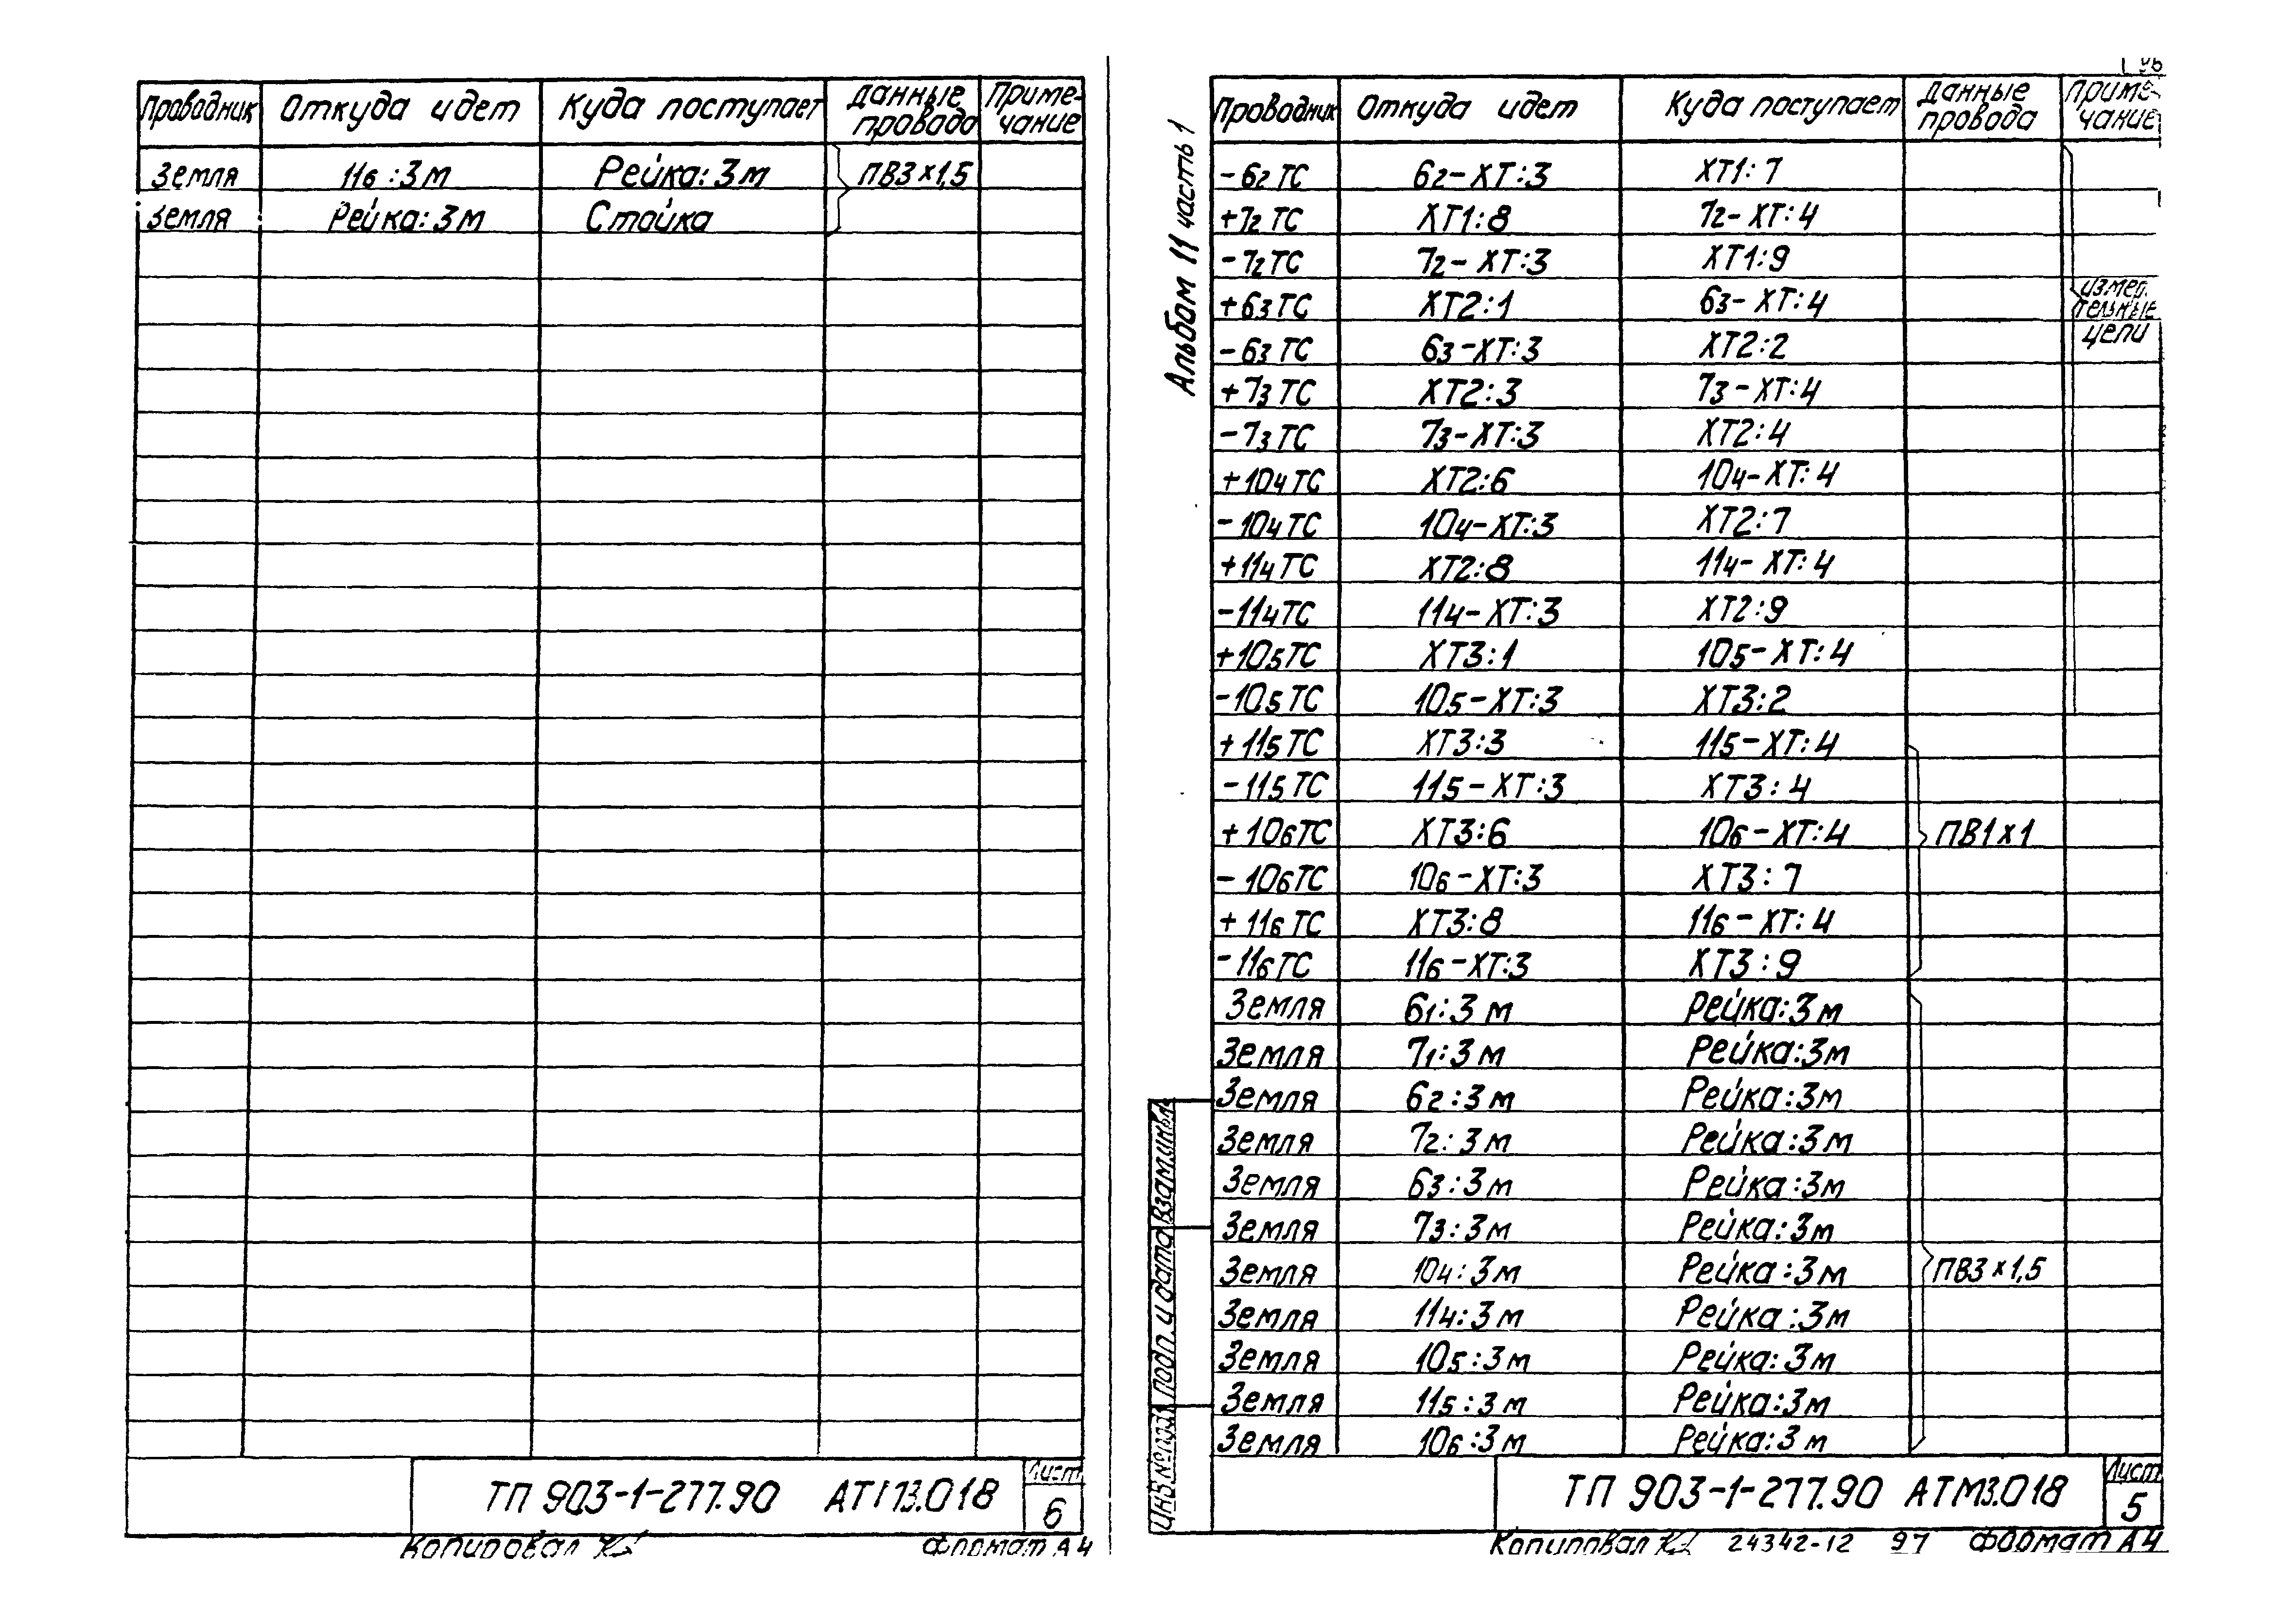 Проводник Откуда идет Куда поступает Данные провода Примечание
Земля 11б:3м Рейка:3м ПВ3х1,5
Земля Рейка:3м Стойка
ТП 903-1-277.90 Лист
6
Копировал Формат А4
Альбом 11 часть 1
Проводник Откуда идет Куда поступает Данные провода Примечание
-62ТС 62-ХТ:3 ХТ1:7
+72ТС ХТ1:8 72-ХТ:4
-72ТС 72-ХТ:3 ХТ1:9
+63ТС ХТ2:1 63-ХТ:4 измерительные
-63ТС 63-ХТ:3 ХТ2:2 цепи
+73ТС ХТ2:3 73-ХТ:4
-73ТС 73-ХТ:3 ХТ2:4
+104ТС ХТ2:6 104-ХТ:4
-104ТС 104-ХТ:3 ХТ2:7
+114ТС ХТ2:8 114-ХТ:4
-114ТС 114-ХТ:3 ХТ2:9
+105ТС ХТ3:1 105-ХТ:4
-105ТС 105-ХТ:3 ХТ3:2
+115ТС ХТ3:3 115-ХТ:4
-115ТС 115-ХТ:3 ХТ3:4
+106ТС ХТ3:6 106-ХТ:4 ПВ1х1
-106ТС 106-ХТ:3 ХТ3:7
+116ТС ХТ3:8 116-ХТ:4
-116ТС 116-ХТ:3 ХТ3:9
Земля 61:3м Рейка:3м
Земля 71:3м Рейка:3м
Земля 62:3м Рейка:3м
Земля 72:3м Рейка:3м
Земля 63:3м Рейка:3м
Земля 73:3м Рейка:3м
Земля 104:3м Рейка:3м ПВ3х1,5
Земля 114:3м Рейка:3м
Земля 105:3м Рейка:3м
Земля 115:3м Рейка:3м
Земля 106:3м Рейка:3м
Подп. и дата
ТП 903-1-277.90 АТМ3.018 Лист
5
Копировал 24342-12 97 Формат А4